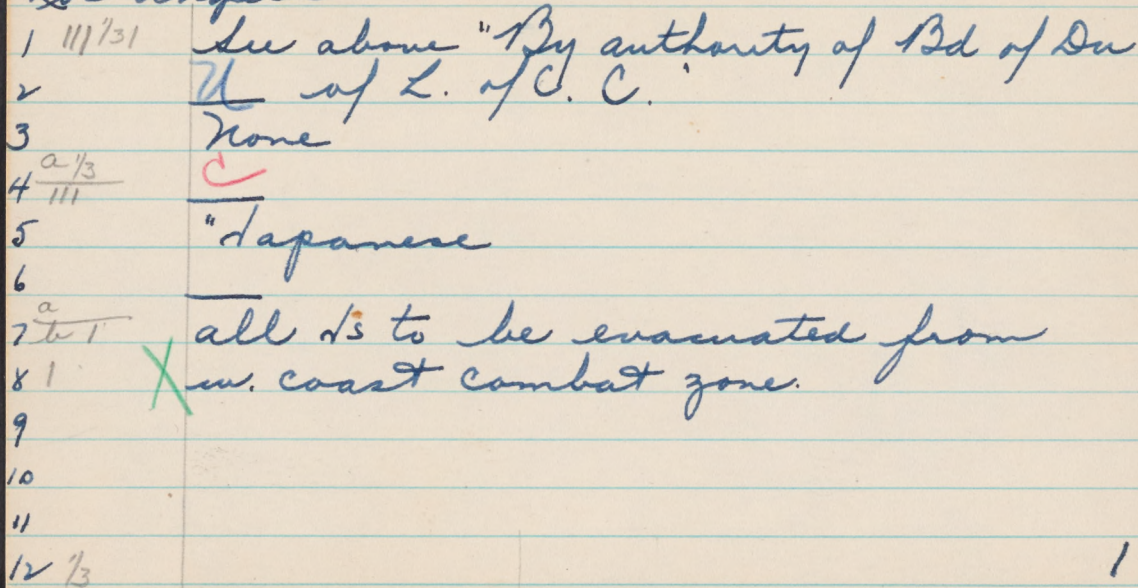 1 111 1/31 See above "By authority of Bd of Du
2 U of L. of C. C. '
3 None
4 a 1/3 111 C
5 "Japanese
6
7 a b 1 all Js to be evacuated from
8 1 X w. coast combat zone.
9
10
11
12 1/3 1